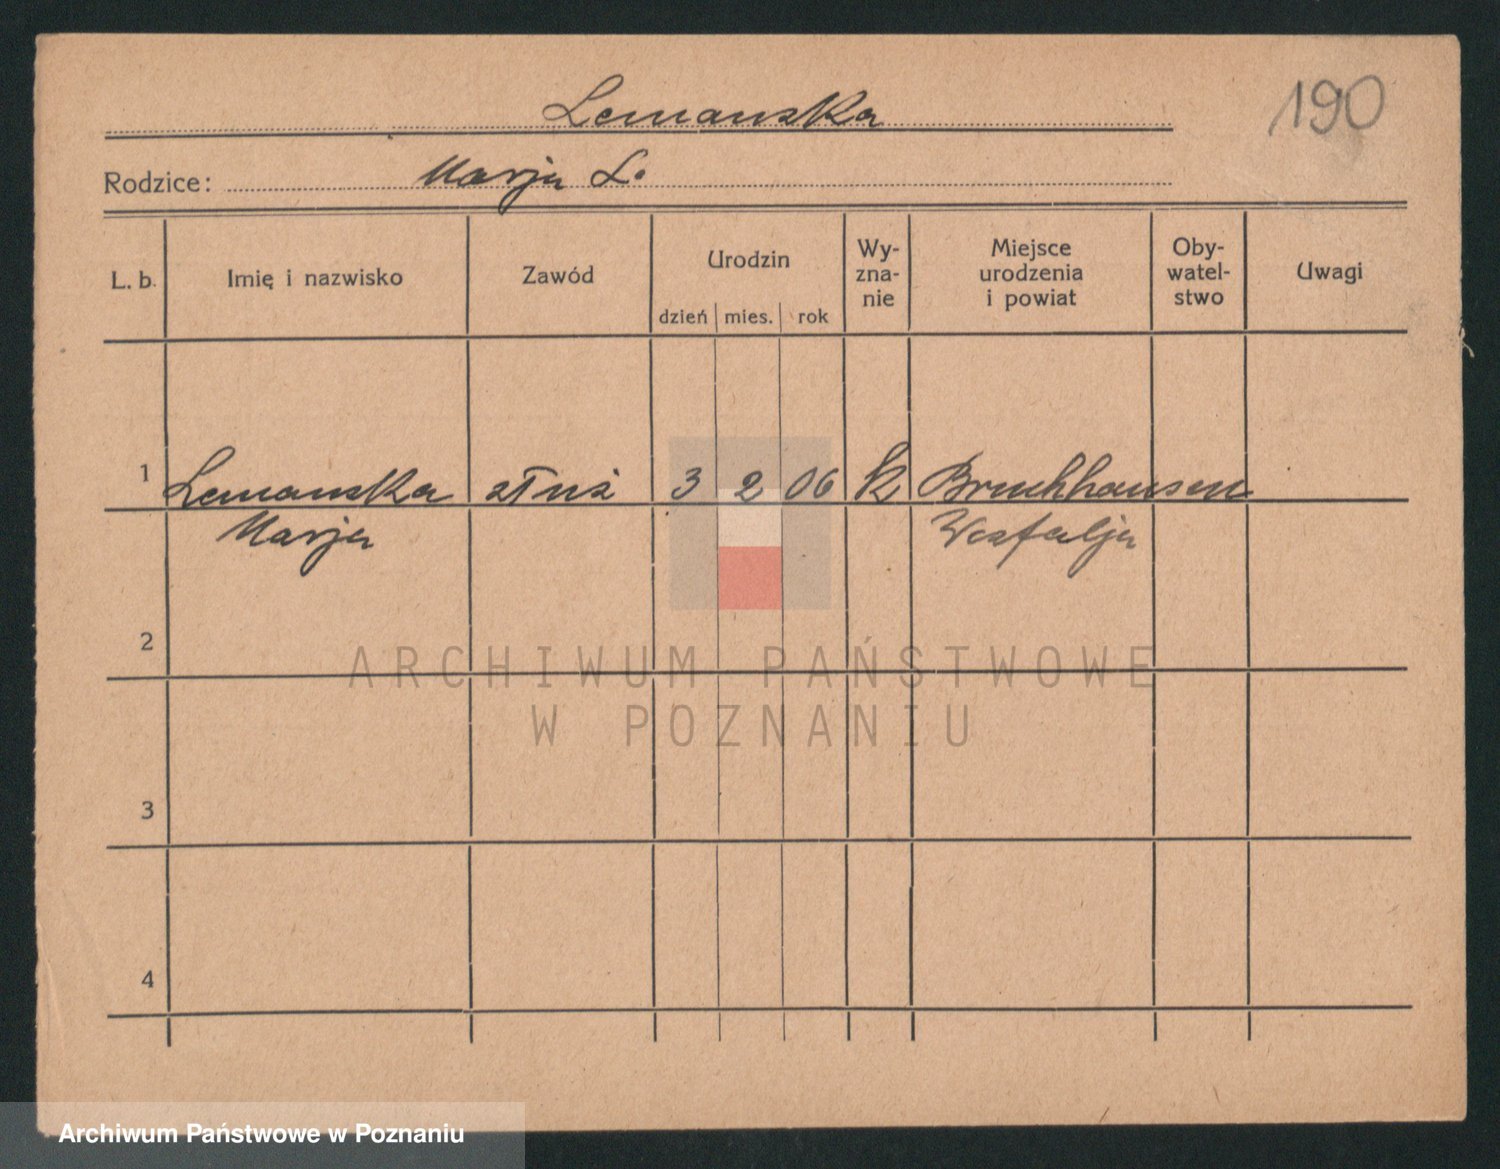 190
Lemanska
Rodzice: Marja L.
L. b. Imię i nazwisko Zawód Urodzin dzień mies. rok Wy-zna-nie Miejsce urodzenia i powiat Oby-watel-stwo Uwagi
1 Lemanska 3 2 06 k Bruchhausen
Marja Westfalja
2
ARCHIWUM PAŃSTWOWE
W POZNANIU
3
4
Archiwum Państwowe w Poznaniu